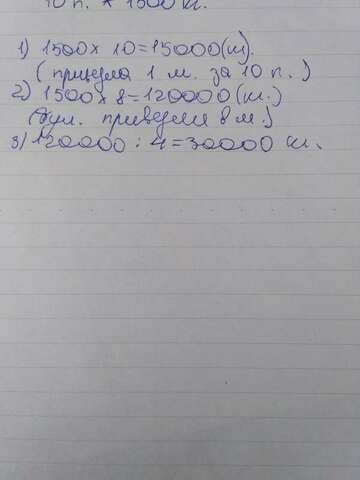 10 п. * 1500 кг.
1) 1500 х 10=15000(ш).
( привезла 1 м. за 10 п. )
2) 1500 х 8=120000(ш.)
привезли 8 м.)
3) 120000 : 4=30000 ш.